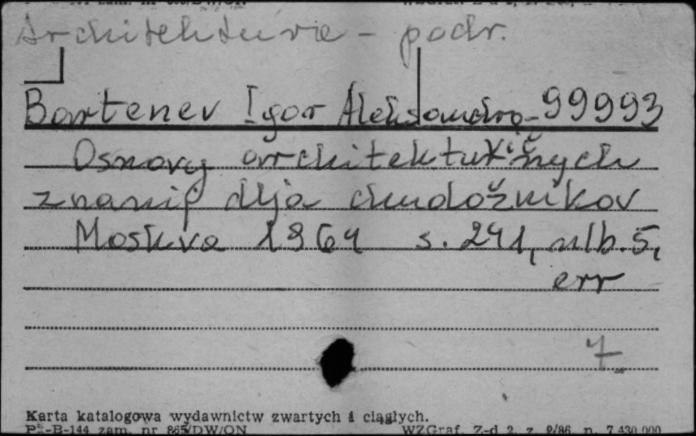 Architektura - podr.
Bartenev Igor Aleksandro- 99993
vič
Osnovy architekturnych
znanij dlja chudožnikov
Moskva 1964 s. 241, nlb. 5,
err
7
Karta katalogowa wydawnictw zwartych i ciągłych.
Pu-B-144 zam. nr 865/DW/ON WZGraf. Z-d 2, z. 9/86, n. 7.430.000